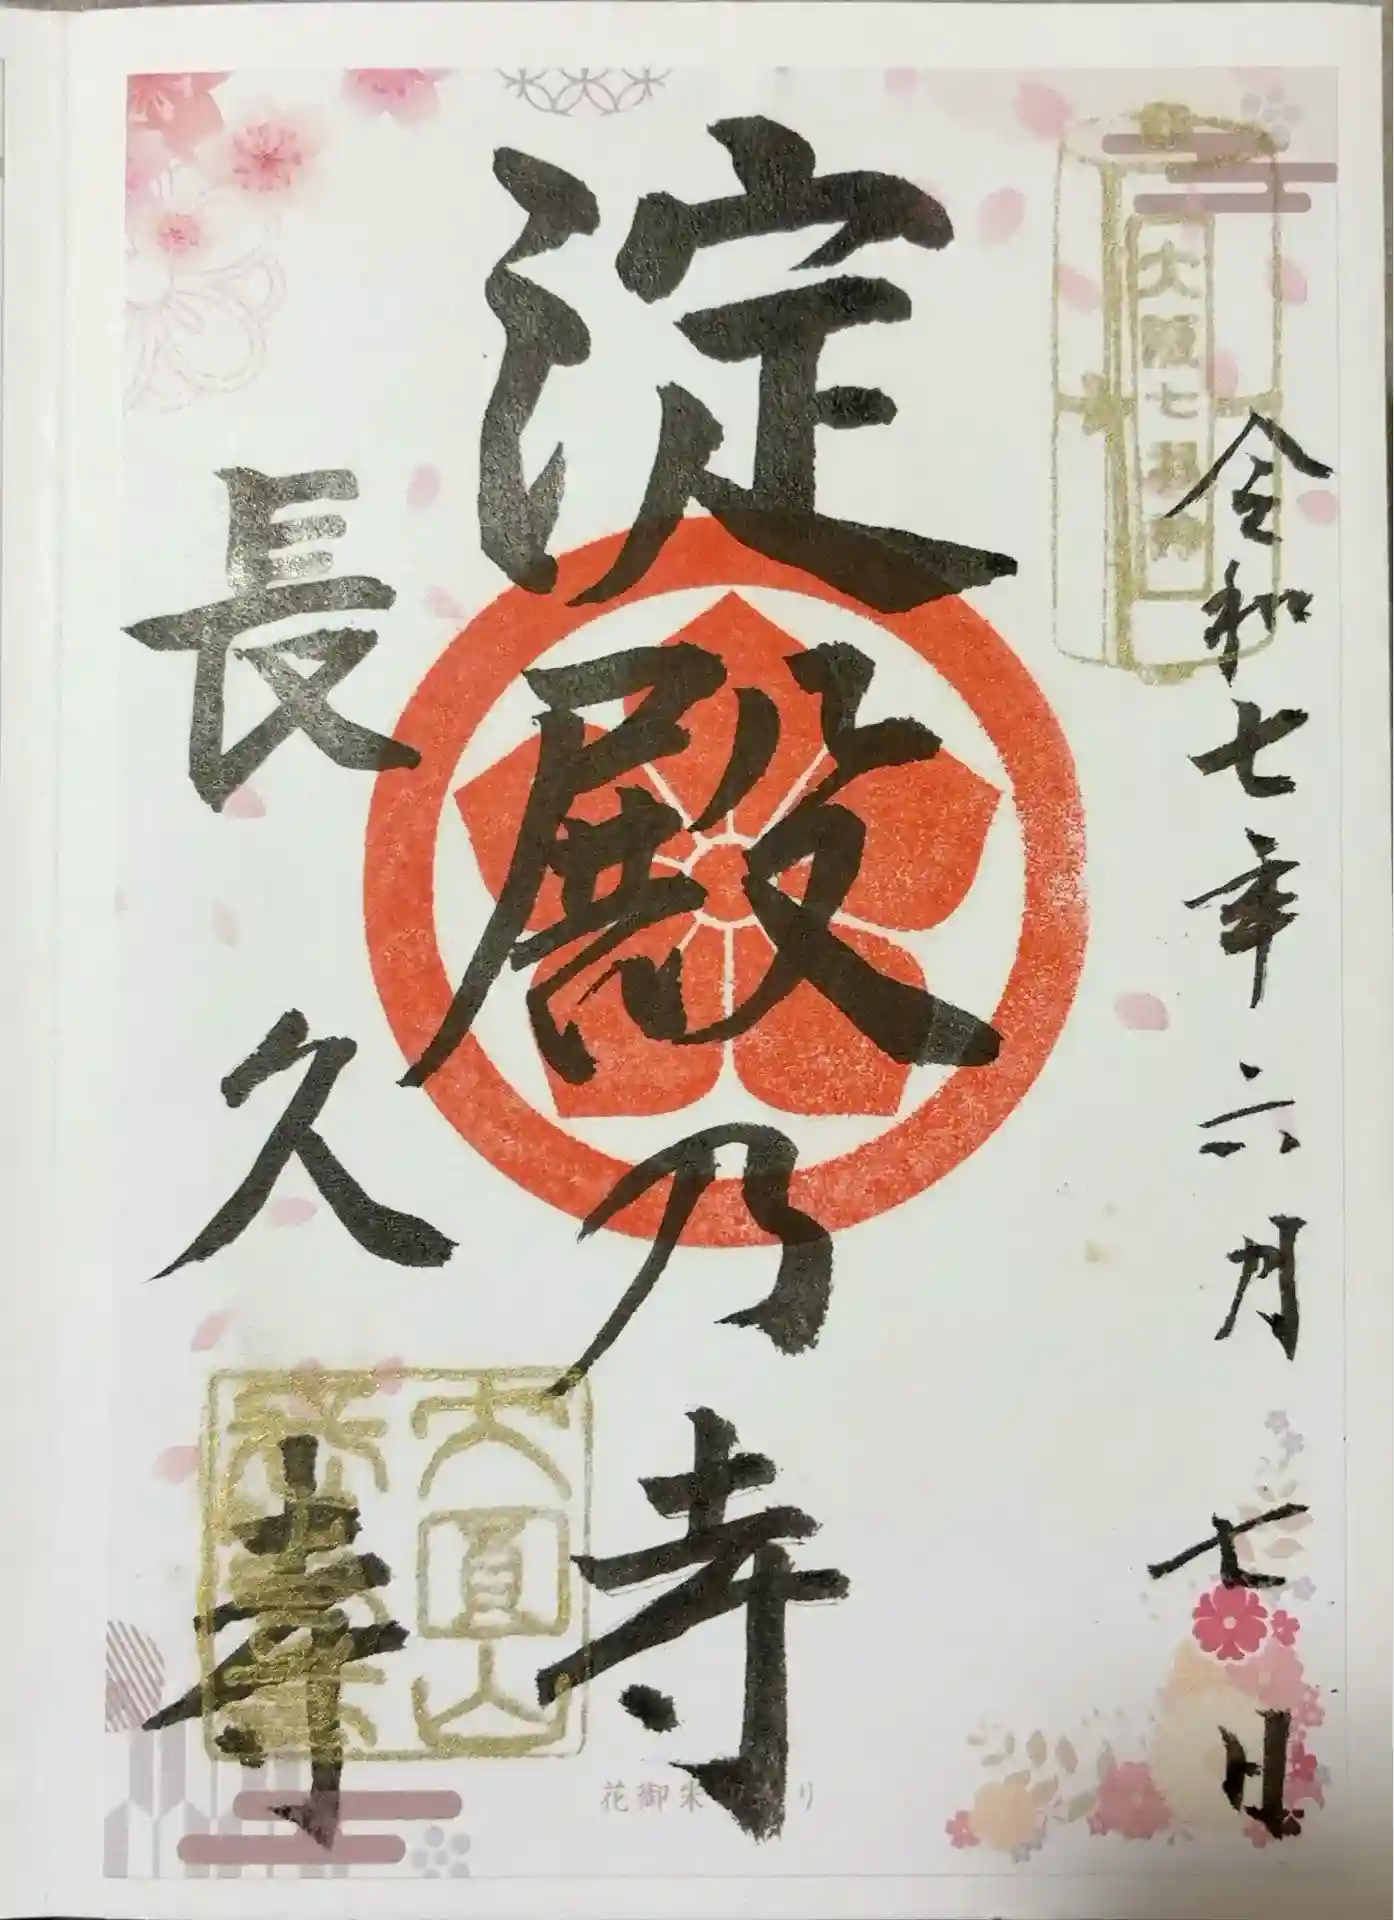 大阪七福神
令和七年六月七日
淀殿乃寺
長久寺
天圓山
花御朱